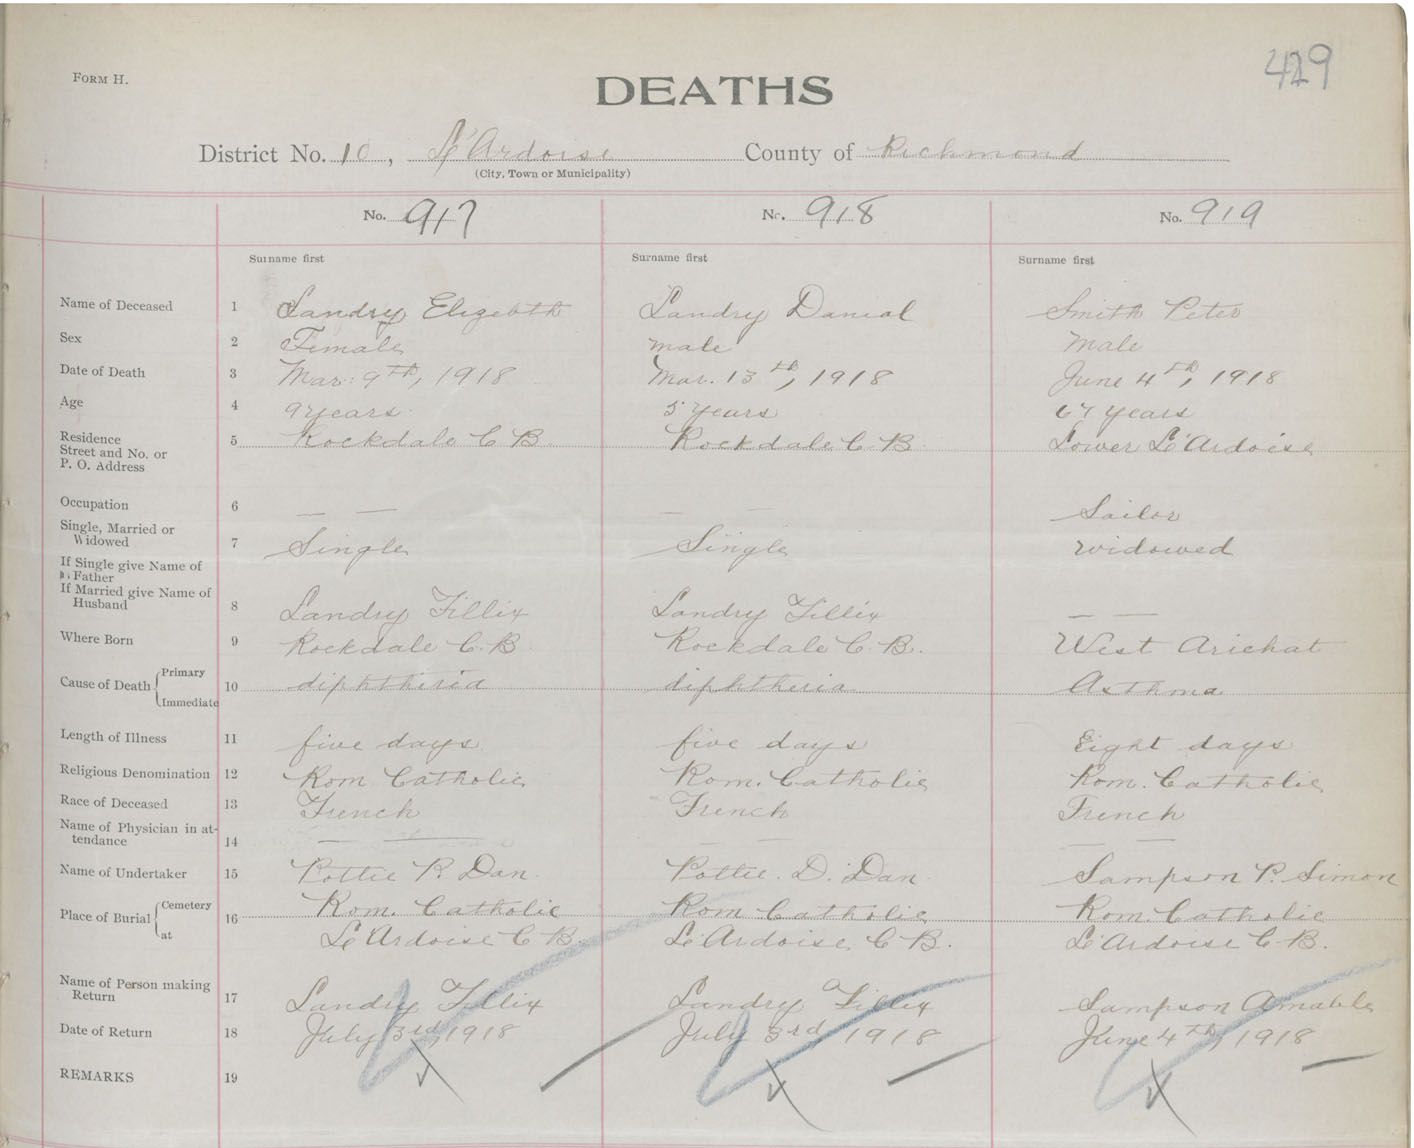 429
FORM H.
DEATHS
District No. 10, L'Ardoise County of Richmond
(City, Town or Municipality)
No. 917 No. 918 No. 919
Surname first Surname first Surname first
Name of Deceased 1 Landry Elizebth Landry Danial Smith Peter
Sex 2 Female male Male
Date of Death 3 Mar. 9th, 1918 Mar. 13th, 1918 June 4th, 1918
Age 4 9 years 5 years 67 years
Residence
Street and No. or
P. O. Address 5 Rockdale C B Rockdale C B Lower L'Ardoise
Occupation 6 — — — — Sailor
Single, Married or
Widowed 7 Single Single widowed
If Single give Name of
Father
If Married give Name of
Husband 8 Landry Fillix Landry Fillix — —
Where Born 9 Rockdale C. B Rockdale C. B. West Arichat
Cause of Death { Primary
Immediate 10 diphtheria diphtheria Asthma
Length of Illness 11 five days five days Eight days
Religious Denomination 12 Rom Catholic Rom. Catholic Rom. Catholic
Race of Deceased 13 French French French
Name of Physician in at-
tendance 14 — — — — — —
Name of Undertaker 15 Pottie R Dan. Pottie. D. Dan Sampson P. Simon
Place of Burial { Cemetery
at 16 Rom. Catholic Rom Catholic Rom. Catholic
L'Ardoise C B. L'Ardoise C B. L'Ardoise C. B.
Name of Person making
Return 17 Landry Fillix Landry Fillix Sampson Amable
Date of Return 18 July 3rd, 1918 July 3rd, 1918 June 4th, 1918
REMARKS 19